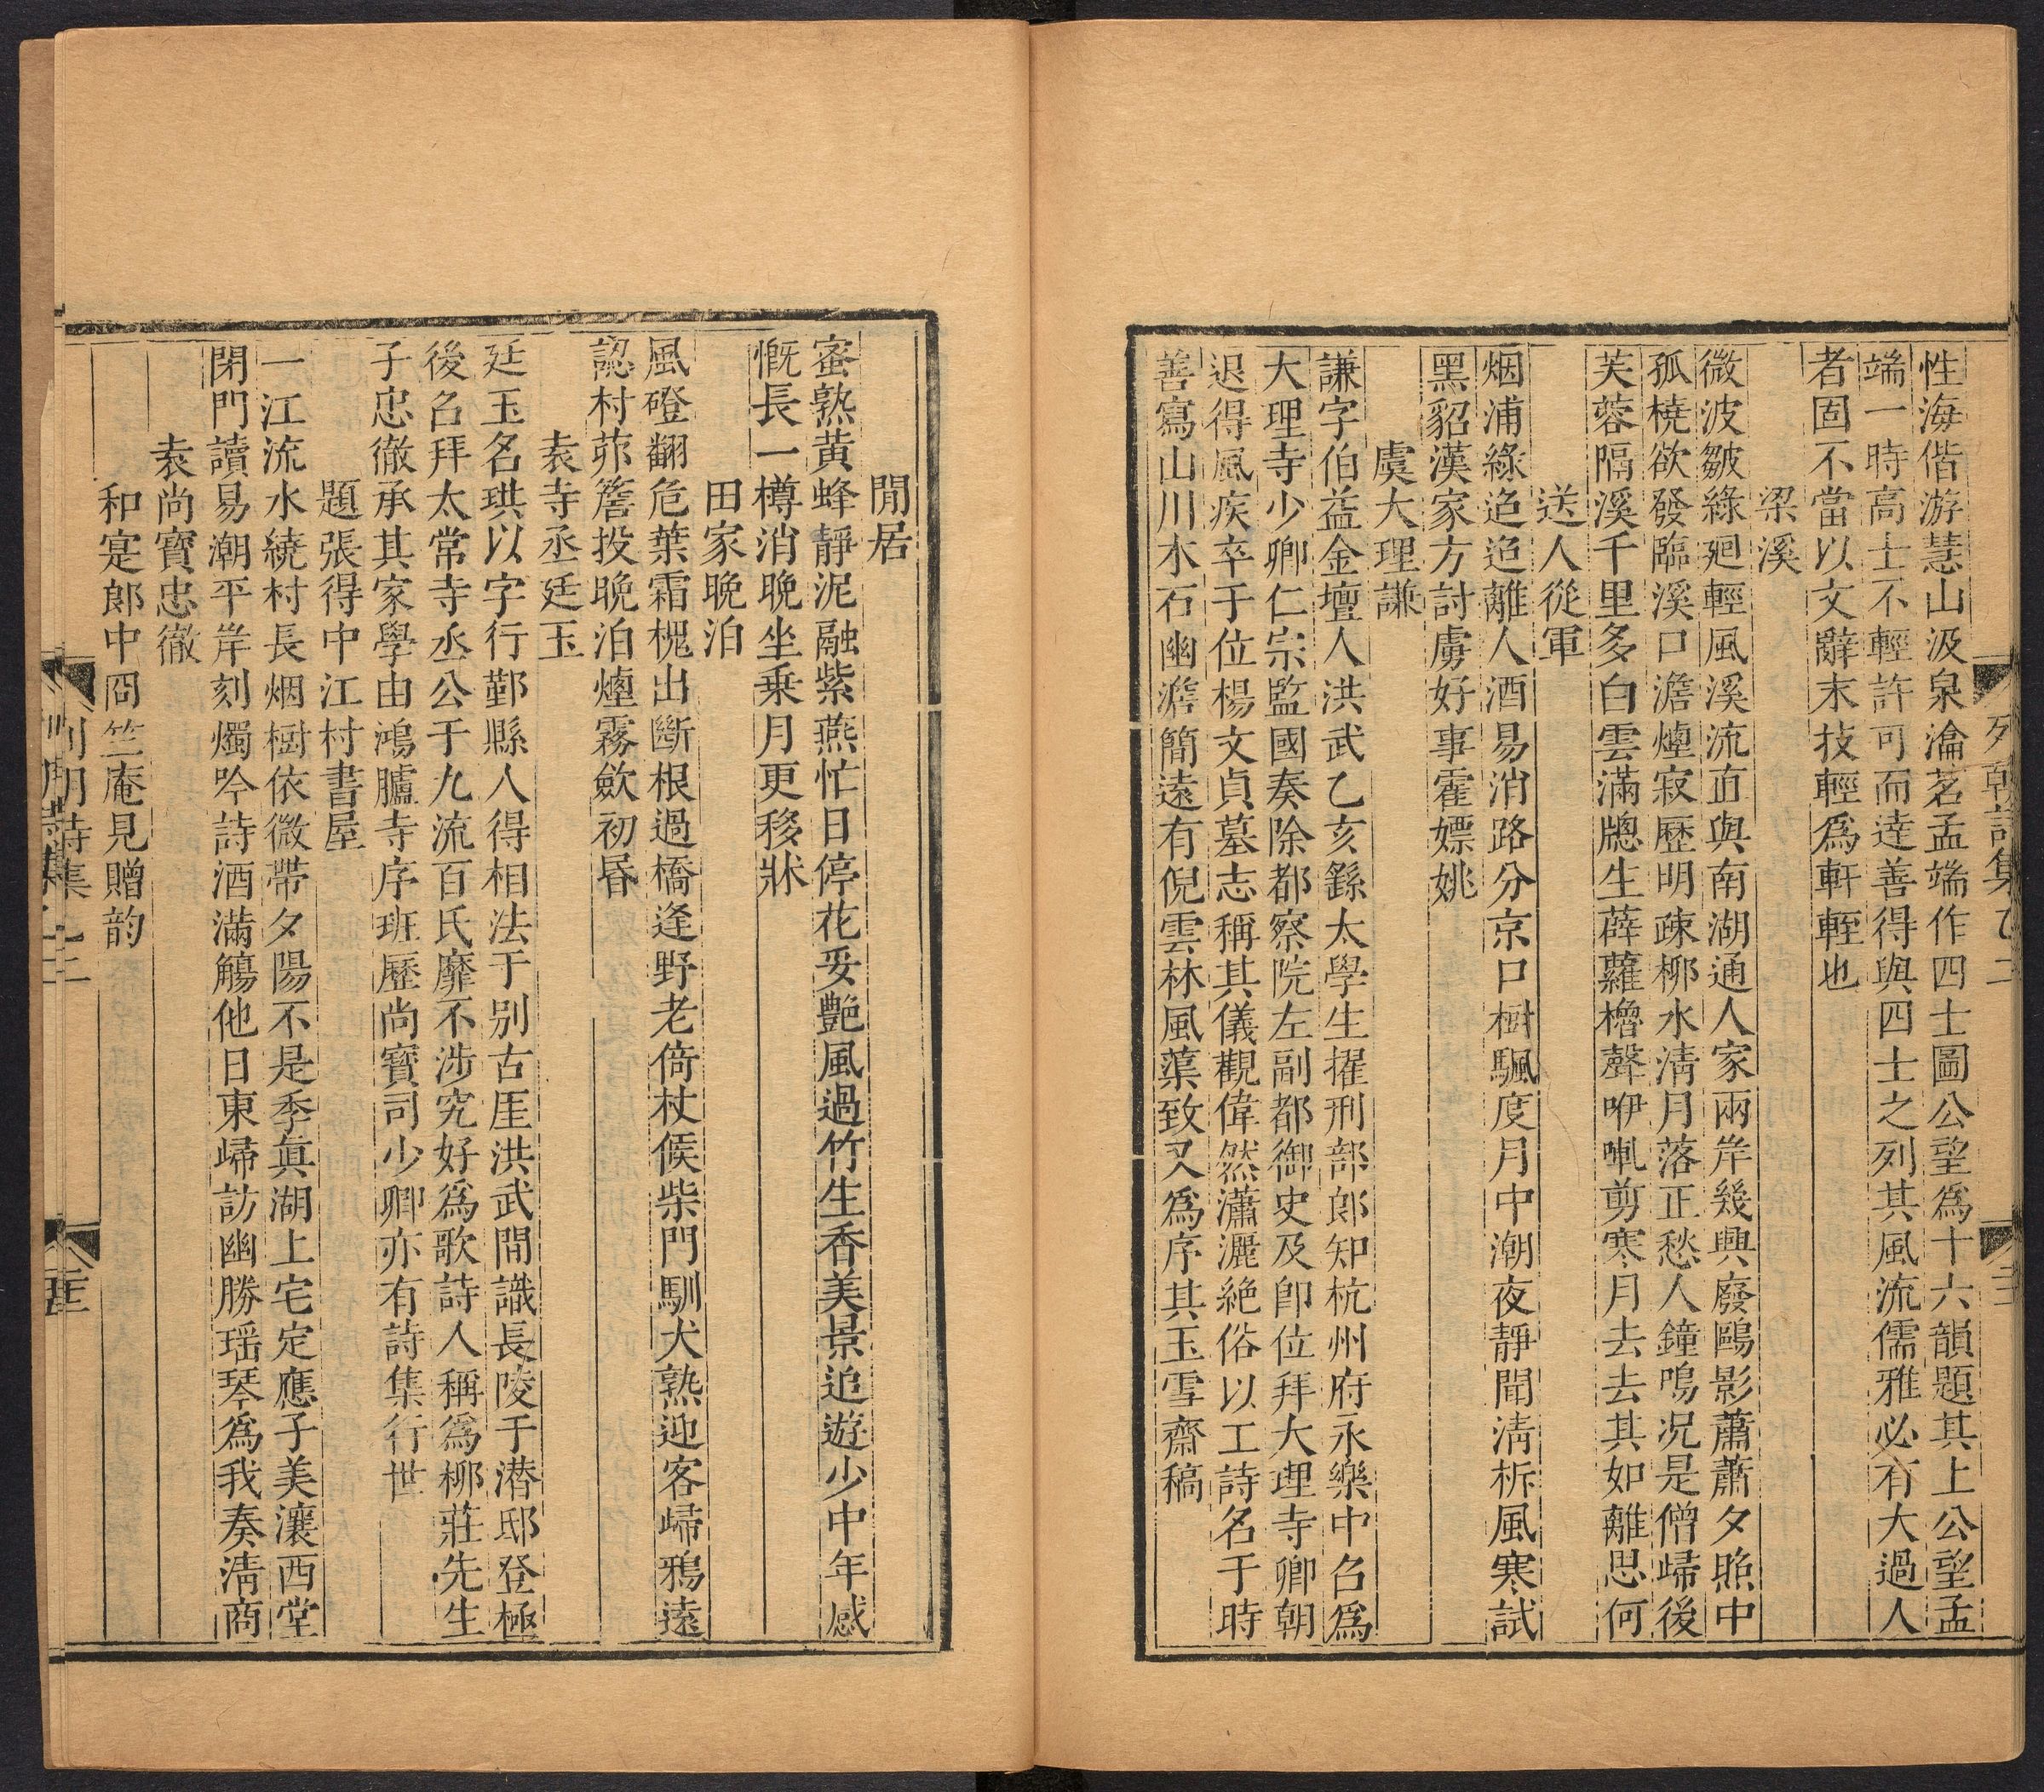 性海偕游慧山汲泉瀹茗孟端作四士圖公望爲十六韻題其上公望孟
端一時高士不輕許可而逹善得與四士之列其風流儒雅必有大過人
者固不當以文辭末技輕爲軒輊也
梁溪
微波皺綠廻輕風溪流直與南湖通人家兩岸幾興廢鷗影蕭蕭夕照中
孤橈欲發臨溪口澹煙寂歷明疎柳水淸月落正愁人鐘鳴况是僧歸後
芙蓉隔溪千里多白雲滿牕生薜蘿櫓聲咿喇剪寒月去去其如離思何
送人從軍
烟浦綠迢迢離人酒易消路分京口樹颿度月中潮夜靜聞淸柝風寒試
黑貂漢家方討虜好事霍嫖姚
虞大理謙
謙字伯益金壇人洪武乙亥繇太學生擢刑部郎知杭州府永樂中召爲
大理寺少卿仁宗監國奏除都察院左副都御史及卽位拜大理寺卿朝
退得風疾卒于位楊文貞墓志稱其儀觀偉然瀟灑絶俗以工詩名于時
善寫山川木石幽澹簡遠有倪雲林風槩致又爲序其玉雪齋稿
列朝詩集乙二
閒居
蜜熟黃蜂靜泥融紫燕忙日停花妥艷風過竹生香美景追遊少中年感
慨長一樽消晚坐乗月更移牀
田家晚泊
風磴翻危葉霜槐出斷根過橋逢野老倚杖候柴門馴犬熟迎客歸鴉遠
認村茆簷投晚泊煙霧歛初昬
袁寺丞廷玉
廷玉名珙以字行鄞縣人得相法于别古厓洪武間識長陵于潜邸登極
後召拜太常寺丞公于九流百氏靡不涉究好爲歌詩人稱爲柳莊先生
子忠徹承其家學由鴻臚寺序班歷尚寶司少卿亦有詩集行世
題張得中江村書屋
一江流水繞村長烟樹依微帶夕陽不是季眞湖上宅定應子美瀼西堂
閉門讀易潮平岸刻燭吟詩酒滿觴他日東歸訪幽勝瑶琴爲我奏淸商
袁尚寶忠徹
和寔郎中冏竺庵見贈韵